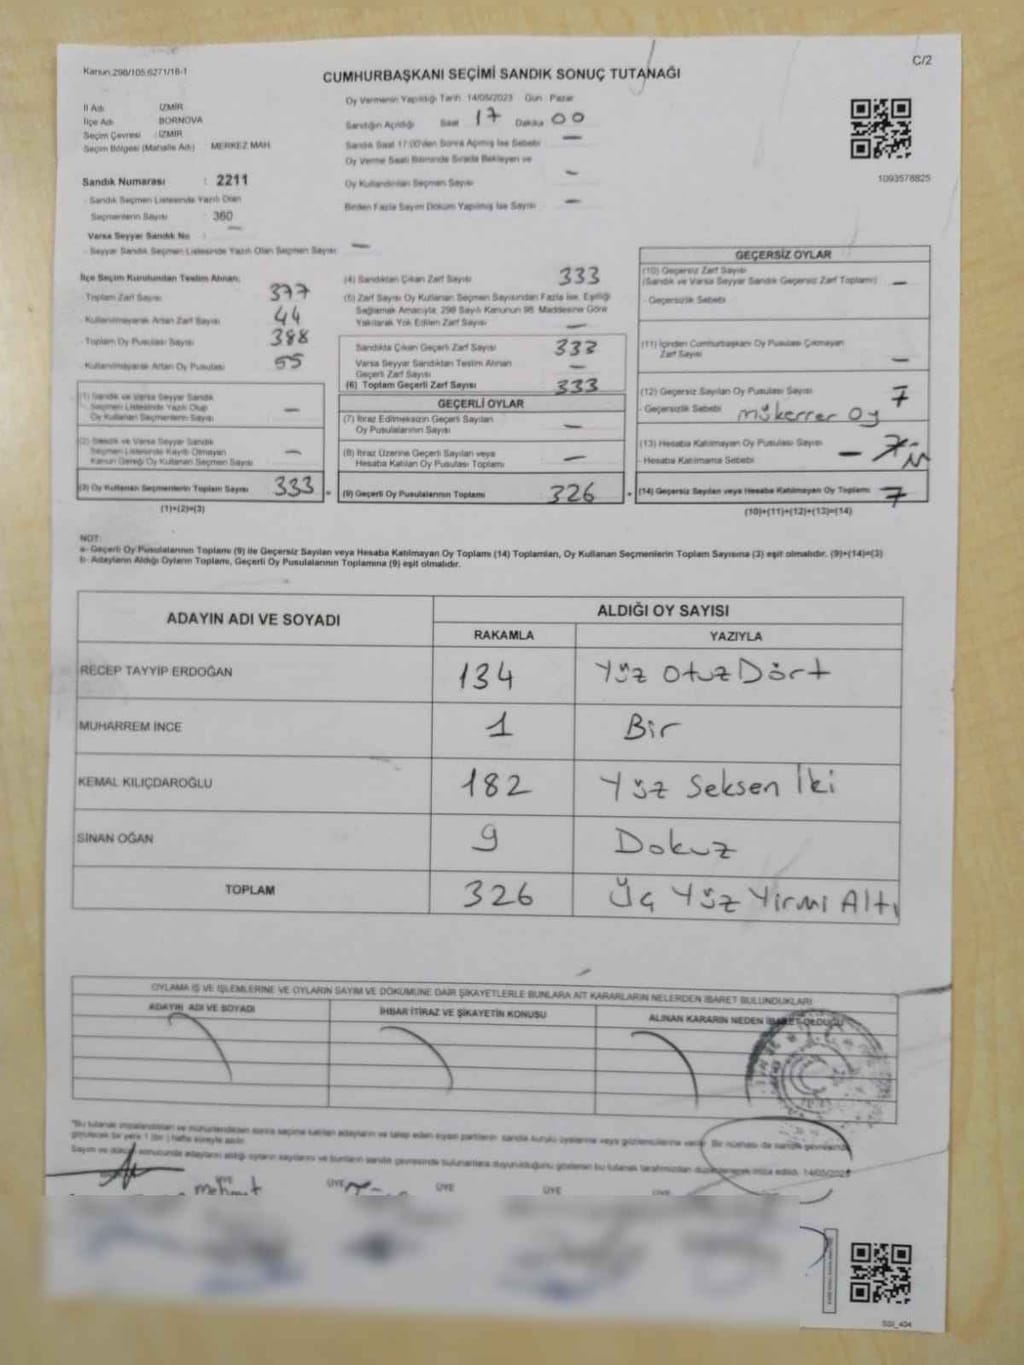 Kanun:298/105;6271/18-1
C/2
CUMHURBAŞKANI SEÇİMİ SANDIK SONUÇ TUTANAĞI
İl Adı : İZMİR
İlçe Adı : BORNOVA
Seçim Çevresi : İZMİR
Seçim Bölgesi (Mahalle Adı) : MERKEZ MAH.
Sandık Numarası : 2211
- Sandık Seçmen Listesinde Yazılı Olan
Seçmenlerin Sayısı : 360
Varsa Seyyar Sandık No : —
- Seyyar Sandık Seçmen Listesinde Yazılı Olan Seçmen Sayısı : —
Oy Vermenin Yapıldığı Tarih : 14/05/2023 Gün : Pazar
Sandığın Açıldığı Saat 17 Dakika 00
Sandık Saat 17.00'den Sonra Açılmış İse Sebebi —
Oy Verme Saati Bitiminde Sırada Bekleyen ve
Oy Kullandırılan Seçmen Sayısı —
Birden Fazla Sayım Döküm Yapılmış İse Sayısı —
1093578825
İlçe Seçim Kurulundan Teslim Alınan;
Toplam Zarf Sayısı 377
- Kullanılmayarak Artan Zarf Sayısı 44
Toplam Oy Pusulası Sayısı 388
- Kullanılmayarak Artan Oy Pusulası 55
(1) Sandık ve Varsa Seyyar Sandık
Seçmen Listesinde Yazılı Olup
Oy Kullanan Seçmenlerin Sayısı —
(2) Sandık ve Varsa Seyyar Sandık
Seçmen Listesinde Kayıtlı Olmayan
Kanun Gereği Oy Kullanan Seçmen Sayısı —
(3) Oy Kullanan Seçmenlerin Toplam Sayısı 333
(1)+(2)=(3)
(4) Sandıktan Çıkan Zarf Sayısı 333
(5) Zarf Sayısı Oy Kullanan Seçmen Sayısından Fazla İse, Eşitliği
Sağlamak Amacıyla; 298 Sayılı Kanunun 98. Maddesine Göre
Yakılarak Yok Edilen Zarf Sayısı —
Sandıkta Çıkan Geçerli Zarf Sayısı 333
Varsa Seyyar Sandıktan Teslim Alınan
Geçerli Zarf Sayısı —
(6) Toplam Geçerli Zarf Sayısı 333
GEÇERLİ OYLAR
(7) İtiraz Edilmeksizin Geçerli Sayılan
Oy Pusulalarının Sayısı —
(8) İtiraz Üzerine Geçerli Sayılan veya
Hesaba Katılan Oy Pusulası Toplamı —
(9) Geçerli Oy Pusulalarının Toplamı 326
GEÇERSİZ OYLAR
(10) Geçersiz Zarf Sayısı
(Sandık ve Varsa Seyyar Sandık Geçersiz Zarf Toplamı) —
- Geçersizlik Sebebi
(11) İçinden Cumhurbaşkanı Oy Pusulası Çıkmayan
Zarf Sayısı —
(12) Geçersiz Sayılan Oy Pusulası Sayısı 7
- Geçersizlik Sebebi mükerrer oy
(13) Hesaba Katılmayan Oy Pusulası Sayısı —
- Hesaba Katılmama Sebebi
(14) Geçersiz Sayılan veya Hesaba Katılmayan Oy Toplamı 7
(10)+(11)+(12)+(13)=(14)
NOT:
a- Geçerli Oy Pusulalarının Toplamı (9) ile Geçersiz Sayılan veya Hesaba Katılmayan Oy Toplamı (14) Toplamları, Oy Kullanan Seçmenlerin Toplam Sayısına (3) eşit olmalıdır. (9)+(14)=(3)
b- Adayların Aldığı Oyların Toplamı, Geçerli Oy Pusulalarının Toplamına (9) eşit olmalıdır.
ADAYIN ADI VE SOYADI
ALDIĞI OY SAYISI
RAKAMLA YAZIYLA
RECEP TAYYİP ERDOĞAN 134 Yüz Otuz Dört
MUHARREM İNCE 1 Bir
KEMAL KILIÇDAROĞLU 182 Yüz Seksen İki
SİNAN OĞAN 9 Dokuz
TOPLAM 326 Üç Yüz Yirmi Altı
OYLAMA İŞ VE İŞLEMLERİNE VE OYLARIN SAYIM VE DÖKÜMÜNE DAİR ŞİKAYETLERLE BUNLARA AİT KARARLARIN NELERDEN İBARET BULUNDUKLARI
ADAYIN ADI VE SOYADI
İHBAR İTİRAZ VE ŞİKAYETİN KONUSU
ALINAN KARARIN NEDEN İBARET OLDUĞU
*Bu tutanak imzalandıktan ve mühürlendikten sonra seçime katılan adayların ve talep eden siyasi partilerin sandık kurulu üyelerine veya gözlemcilerine verilir. Bir nüshası da sandık çevresinde
görülecek bir yere 1 (bir) hafta süreyle asılır.
Sayım ve döküm sonucunda adayların aldığı oyların sayılarını ve bunların sandık çevresinde bulunanlara duyurulduğunu gösteren bu tutanak tarafımızdan düzenlenerek imza edildi. 14/05/2023
Mehmet
ÜYE ÜYE ÜYE ÜYE